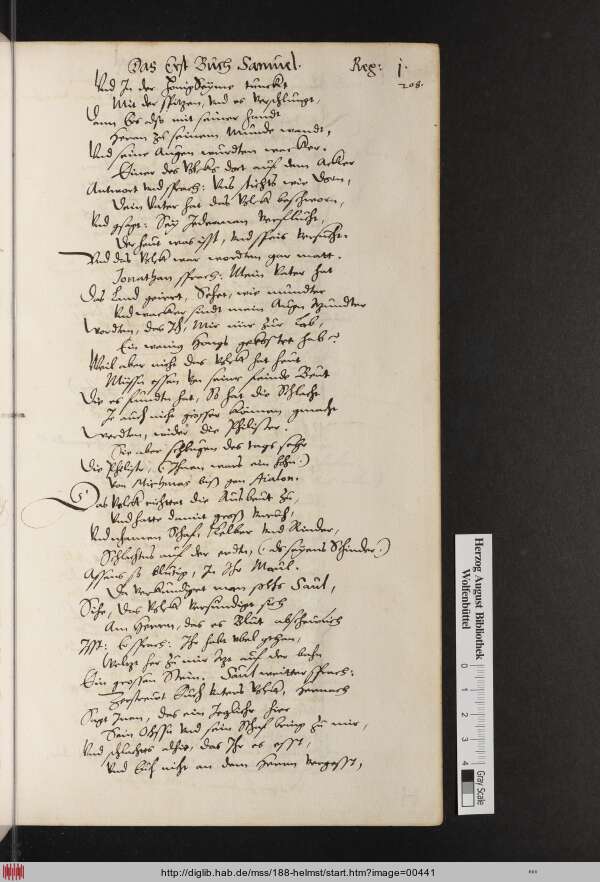 Das Erst Buch Samuel. Reg: j.
208.
Und In der Honig Seyme tunckt
Mit der spitzen, und es verschlungt,
Dann Er also mit seiner handt
Herein zu seinem Munde wandt,
Und seine Augen wurdten wacker.
Einer des Volcks dort auf dem Acker
Antwort und sprach: Uns
Dein Vater hat das Volck beschworn,
Und gsagt: Sey Jederman verflucht,
Der heut was isst, und speis versucht.
Und das Volck war wordten gar matt.
Jonathan sprach: Mein Vater hat
Das Land geirrt, Sehet, wie munder
Und wacker sindt mein Augen
Wordten, das Ich, Mir nur zur Lab,
Ein wenig Honigs gekostet hab?
Weil aber nicht das Volck hat heut
Müssen essen von seiner Feinde Beut
Die es fundten hat, So hat die Schlacht
Je auch nicht grösser können gemacht
Werdten, wider die Philister.
Sie aber schlugen des tags sehr
Die Philister, (Ihnen wars ein hohn.)
Von Michmas biss gen Aialon.
Das Volck richtet die Ausbeut zu,
Und hatte damit gross unruh,
Und namen Schaf, Kelber und Rinder,
Schlachtens auf der erdten, (als seyens Schinder.)
Assens so blutig, In Ihr Maul.
Da verkundiget man solchs Saul,
Sihe, das Volck versundigt sich
Am Herren, das es Blut abscheulich
Isst: Er sprach: Ihr habt ubel gethan,
Weltzt her zu mir Izt auf der bahn
Ein grossen Stein. Saul weitter sprach:
Zerstreut Euch unters Volck, hernach
Sagt Inen, das ein Jeglicher hier
Sein Ochssen und sein Schaf bring zu mir,
Und schlachts alhie, das Ihr es esst,
Und Euch nicht an dem Herrn vergesst,
Herzog August Bibliothek
Wolfenbüttel
0 1 2 3 4
Gray Scale
http://diglib.hab.de/mss/188-helmst/start.htm?image=00441